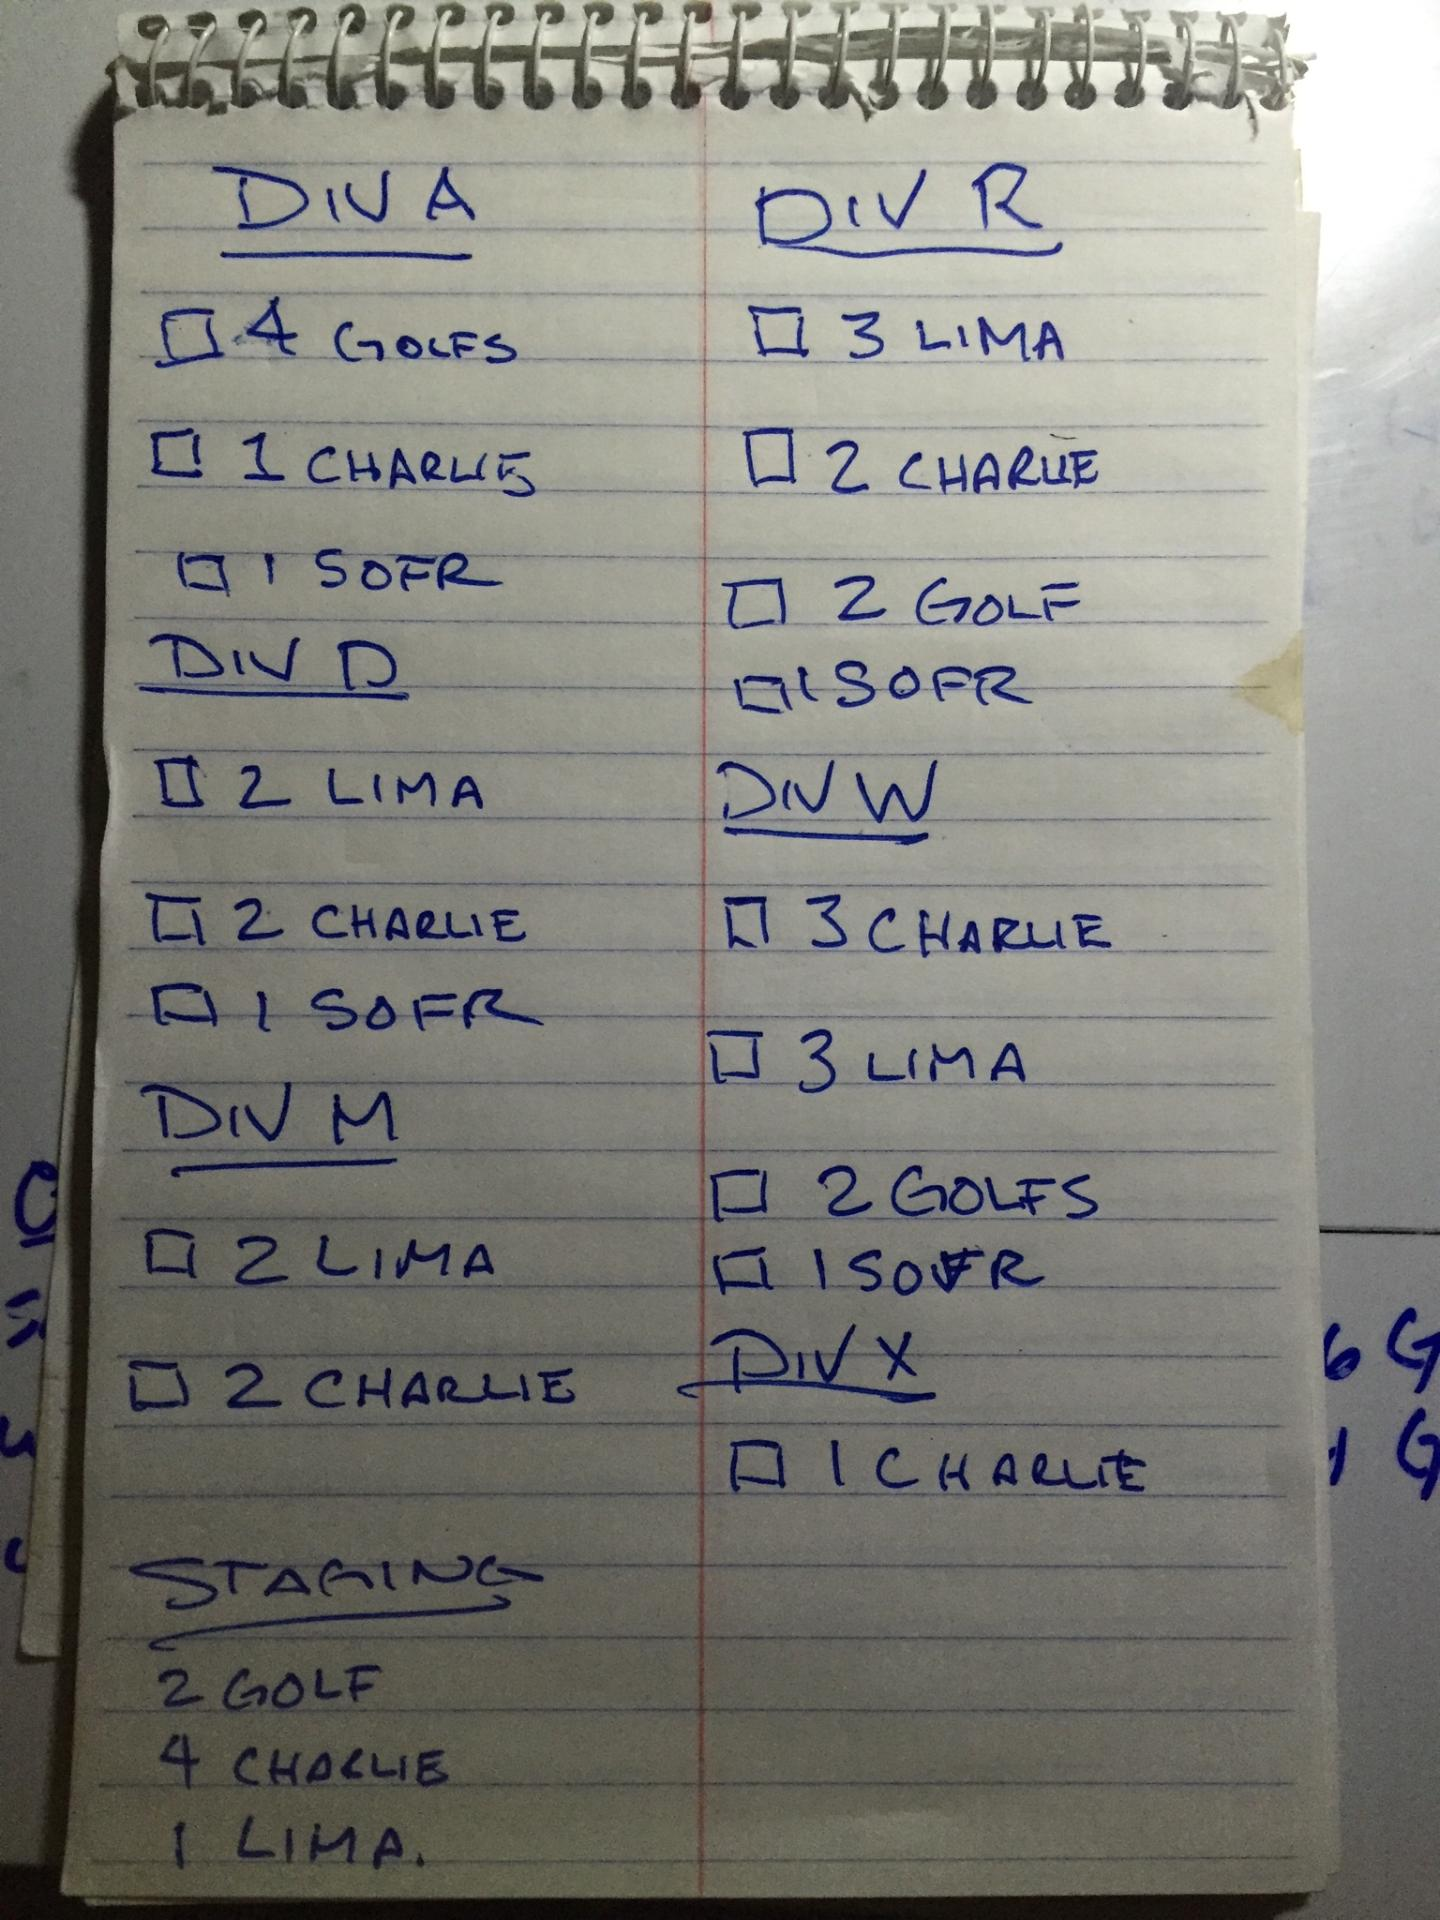 DIV A
4 GOLFS
1 CHARLIE
1 SOFR
DIV D
2 LIMA
2 CHARLIE
1 SOFR
DIV M
2 LIMA
2 CHARLIE
STAGING
2 GOLF
4 CHARLIE
1 LIMA.
DIV R
3 LIMA
2 CHARLIE
2 GOLF
1 SOFR
DIV W
3 CHARLIE
3 LIMA
2 GOLFS
1 SOFR
DIV X
1 CHARLIE
6 G
1 G